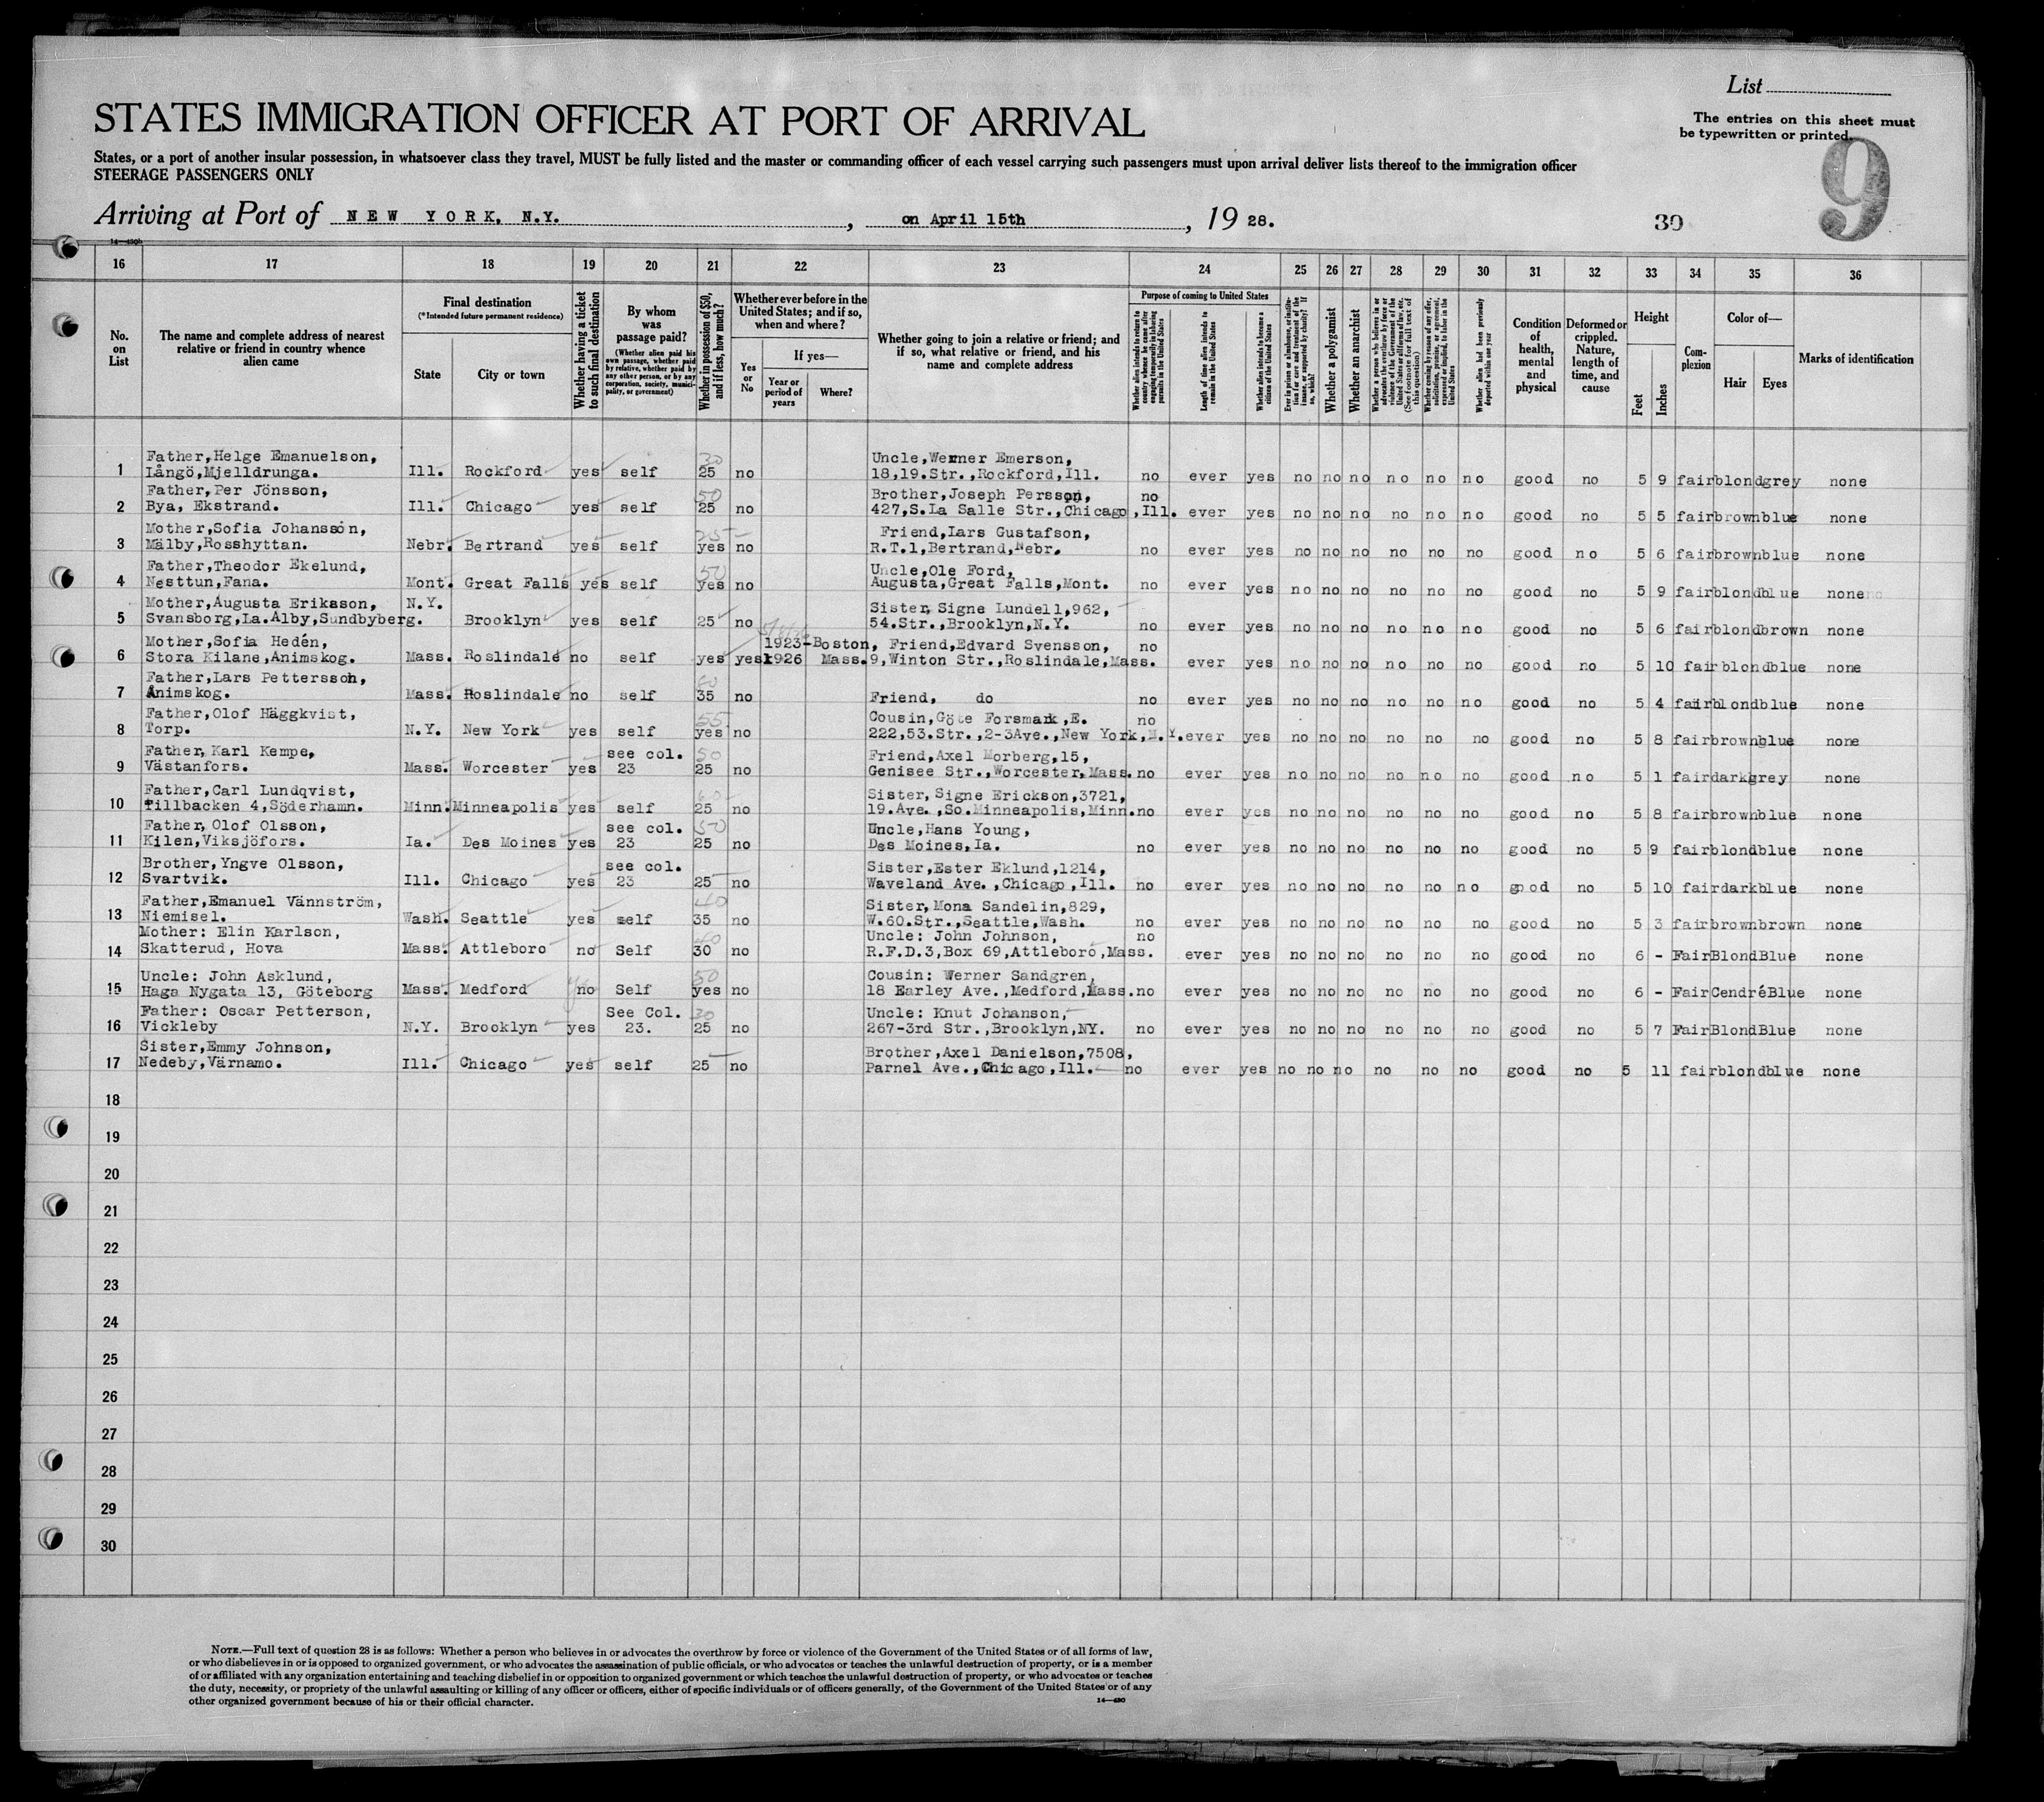 List
The entries on this sheet must
be typewritten or printed.
9
STATES IMMIGRATION OFFICER AT PORT OF ARRIVAL
States, or a port of another insular possession, in whatsoever class they travel, MUST be fully listed and the master or commanding officer of each vessel carrying such passengers must upon arrival deliver lists thereof to the immigration officer
STEERAGE PASSENGERS ONLY
Arriving at Port of NEW YORK, N.Y. , on April 15th , 19 28.
30
16 17 18 19 20 21 22 23 24 25 26 27 28 29 30 31 32 33 34 35 36
No. on List
The name and complete address of nearest relative or friend in country whence alien came
Final destination
(*Intended future permanent residence)
State
City or town
Whether having a ticket to such final destination
By whom was passage paid?
(Whether alien paid his own passage, whether paid by relative, whether paid by any other person, or by any corporation, society, municipality, or government)
Whether in possession of $50, and if less, how much?
Whether ever before in the United States; and if so, when and where?
Yes or No
If yes—
Year or period of years
Where?
Whether going to join a relative or friend; and if so, what relative or friend, and his name and complete address
Purpose of coming to United States
Whether alien intends to return to country whence he came after engaging temporarily in laboring pursuits in the United States
Length of time alien intends to remain in the United States
Whether alien intends to become a citizen of the United States
Whether a polygamist
Whether an anarchist
Whether alien had been previously deported within one year
Condition of health, mental and physical
Deformed or crippled. Nature, length of time, and cause
Height
Feet
Inches
Complexion
Color of—
Hair
Eyes
Marks of identification
Father,Helge Emanuelson, Uncle,Werner Emerson,
1 Långö,Mjelldrunga. Ill. Rockford yes self 25 no 18,19.Str.,Rockford,Ill. no ever yes no no no no no no good no 5 9 fair blond grey none
Father,Per Jönsson, 50 Brother,Joseph Persson, no
2 Bya, Ekstrand. Ill. Chicago yes self 25 no 427,S.La Salle Str.,Chicago,Ill. ever yes no no no no no no good no 5 5 fair brown blue none
Mother,Sofia Johansson, Friend,Lars Gustafson,
3 Mälby,Rosshyttan. Nebr. Bertrand yes self yes no R.T.1,Bertrand,Nebr. no ever yes no no no no no no good no 5 6 fair brown blue none
Father,Theodor Ekelund, 50 Uncle,Ole Ford,
4 Nesttun,Fana. Mont. Great Falls yes self yes no Augusta,Great Falls,Mont. no ever yes no no no no no no good no 5 9 fair blond blue none
Mother,Augusta Eriksson, N.Y. Sister, Signe Lundell,962,
5 Svansborg,La.Alby,Sundbyberg. Brooklyn yes self 25 no 54.Str.,Brooklyn,N.Y. no ever yes no no no no no no good no 5 6 fair blond brown none
Mother,Sofia Hedén, 1923-Boston, Friend,Edvard Svensson, no
6 Stora Kilane,Animskog. Mass. Roslindale no self yes yes 1926 Mass. 9,Winton Str.,Roslindale,Mass. ever yes no no no no no no good no 5 10 fair blond blue none
Father,Lars Pettersson,
7 Ånimskog. Mass. Roslindale no self 35 no Friend, do no ever yes no no no no no no good no 5 4 fair blond blue none
Father,Olof Häggkvist, 55 Cousin,Göte Forsmark,E. no
8 Torp. N.Y. New York yes self yes no 222,53.Str.,2-3Ave.,New York,N.Y. ever yes no no no no no no good no 5 8 fair brown blue none
Father,Karl Kempe, see col. 50 Friend,Axel Morberg,15,
9 Västanfors. Mass. Worcester yes 23 25 no Genisee Str.,Worcester,Mass. no ever yes no no no no no no good no 5 1 fair dark grey none
Father,Carl Lundqvist, Sister,Signe Erickson,3721,
10 Tillbacken 4,Söderhamn. Minn. Minneapolis yes self 25 no 19.Ave.,So.Minneapolis,Minn. no ever yes no no no no no no good no 5 8 fair brown blue none
Father,Olof Olsson, see col. 50 Uncle,Hans Young,
11 Kilen,Viksjöfors. Ia. Des Moines yes 23 25 no Des Moines,Ia. no ever yes no no no no no no good no 5 9 fair blond blue none
Brother,Yngve Olsson, see col. Sister,Ester Eklund,1214,
12 Svartvik. Ill. Chicago yes 23 25 no Waveland Ave.,Chicago,Ill. no ever yes no no no no no no good no 5 10 fair dark blue none
Father,Emanuel Vännström, 40 Sister,Mona Sandelin,829,
13 Niemisel. Wash. Seattle yes self 35 no W.60.Str.,Seattle,Wash. no ever yes no no no no no no good no 5 3 fair brown brown none
Mother: Elin Karlson, 40 Uncle: John Johnson, no
14 Skatterud, Hova Mass. Attleboro no Self 30 no R.F.D.3,Box 69,Attleboro,Mass. ever yes no no no no no no good no 6 - Fair Blond Blue none
Uncle: John Asklund, 50 Cousin: Werner Sandgren,
15 Haga Nygata 13, Göteborg Mass. Medford no Self yes no 18 Earley Ave.,Medford,Mass. no ever yes no no no no no no good no 6 - Fair Cendré Blue none
Father: Oscar Petterson, See Col. 30 Uncle: Knut Johanson,
16 Vickleby N.Y. Brooklyn yes 23. 25 no 267-3rd Str.,Brooklyn,NY. no ever yes no no no no no no good no 5 7 Fair Blond Blue none
Sister,Emmy Johnson, Brother,Axel Danielson,7508,
17 Nedeby,Värnamo. Ill. Chicago yes self 25 no Parnel Ave.,Chicago,Ill. no ever yes no no no no no no good no 5 11 fair blond blue none
18
19
20
21
22
23
24
25
26
27
28
29
30
NOTE.—Full text of question 28 is as follows: Whether a person who believes in or advocates the overthrow by force or violence of the Government of the United States or of all forms of law,
or who disbelieves in or is opposed to organized government, or who advocates the assassination of public officials, or who advocates or teaches the unlawful destruction of property, or is a member
of or affiliated with any organization entertaining and teaching disbelief in or opposition to organized government or which teaches the unlawful destruction of property, or who advocates or teaches
the duty, necessity, or propriety of the unlawful assaulting or killing of any officer or officers, either of specific individuals or of officers generally, of the Government of the United States or of any
other organized government because of his or their official character.
14—430